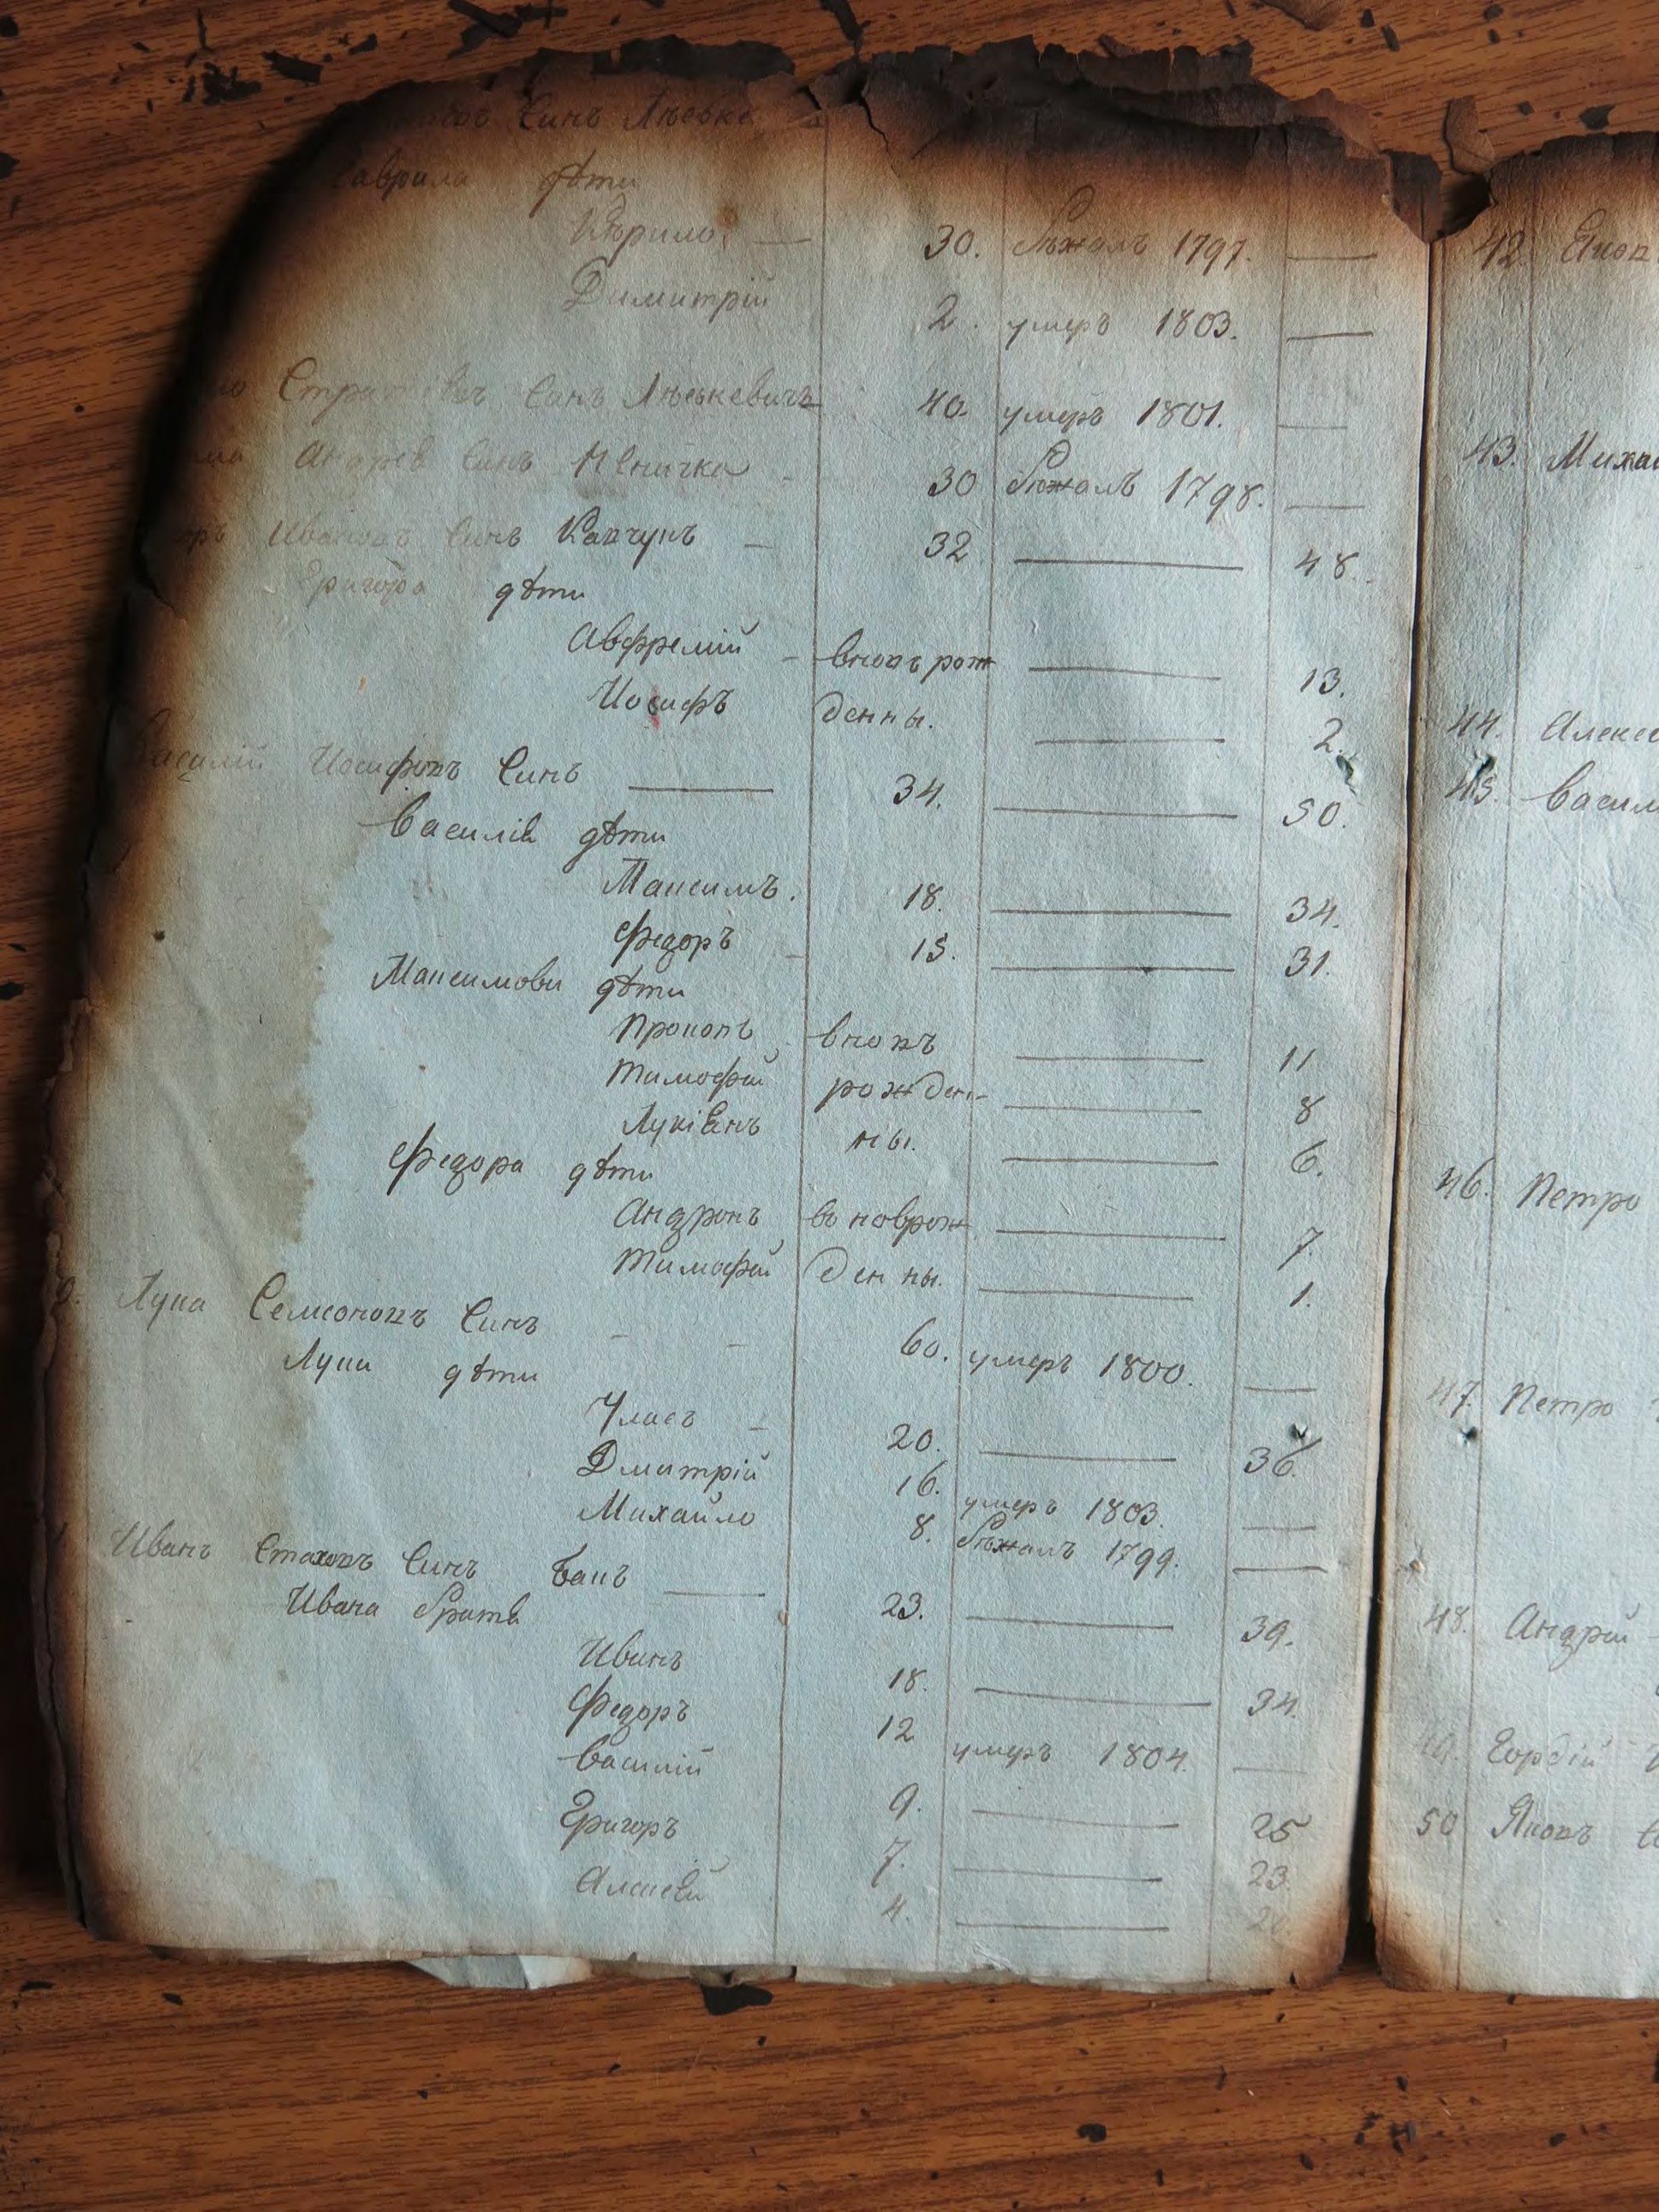 Синъ Лѣевке
Гаврила дѣти
Кѣрило 30. бѣжалъ 1797.
Димитрій 2. умеръ 1803.
Синъ Лѣевкевичъ 40. умеръ 1801.
Андрѣв Синъ 30 бѣжалъ 1798.
Ивановъ Синъ Капчунъ 32 48.
Григора дѣти
Авфремій вновъ рож 13.
Иосифъ денны. 2.
Василій Иосифовъ Синъ 34. 50.
Василів дѣти
Максимъ. 18. 34.
Федоръ 15. 31.
Максимови дѣти
Прокопъ вновъ 11
Тимофей рожден- 8
Лукіянъ ны. 6.
Федора дѣти
Андронъ во новрож 7.
Тимофей денны. 1.
Лука Семионовъ Синъ 60. умеръ 1800.
Луки дѣти
Уласъ 20. 36.
Дмитрій 16. умеръ 1803.
Михайло 8. бѣжалъ 1799.
Иванъ Стаховъ Синъ Банъ 23. 39.
Ивана брати
Иванъ 18. 34.
Федоръ 12 умеръ 1804.
Василій 9. 25
Григоръ 7. 23.
Алексѣй 4. 20.
42
43. Михай
44. Алексе
45. Васил
46. Петро
47. Петро
48. Андрій
49. Гордій
50 Яковъ